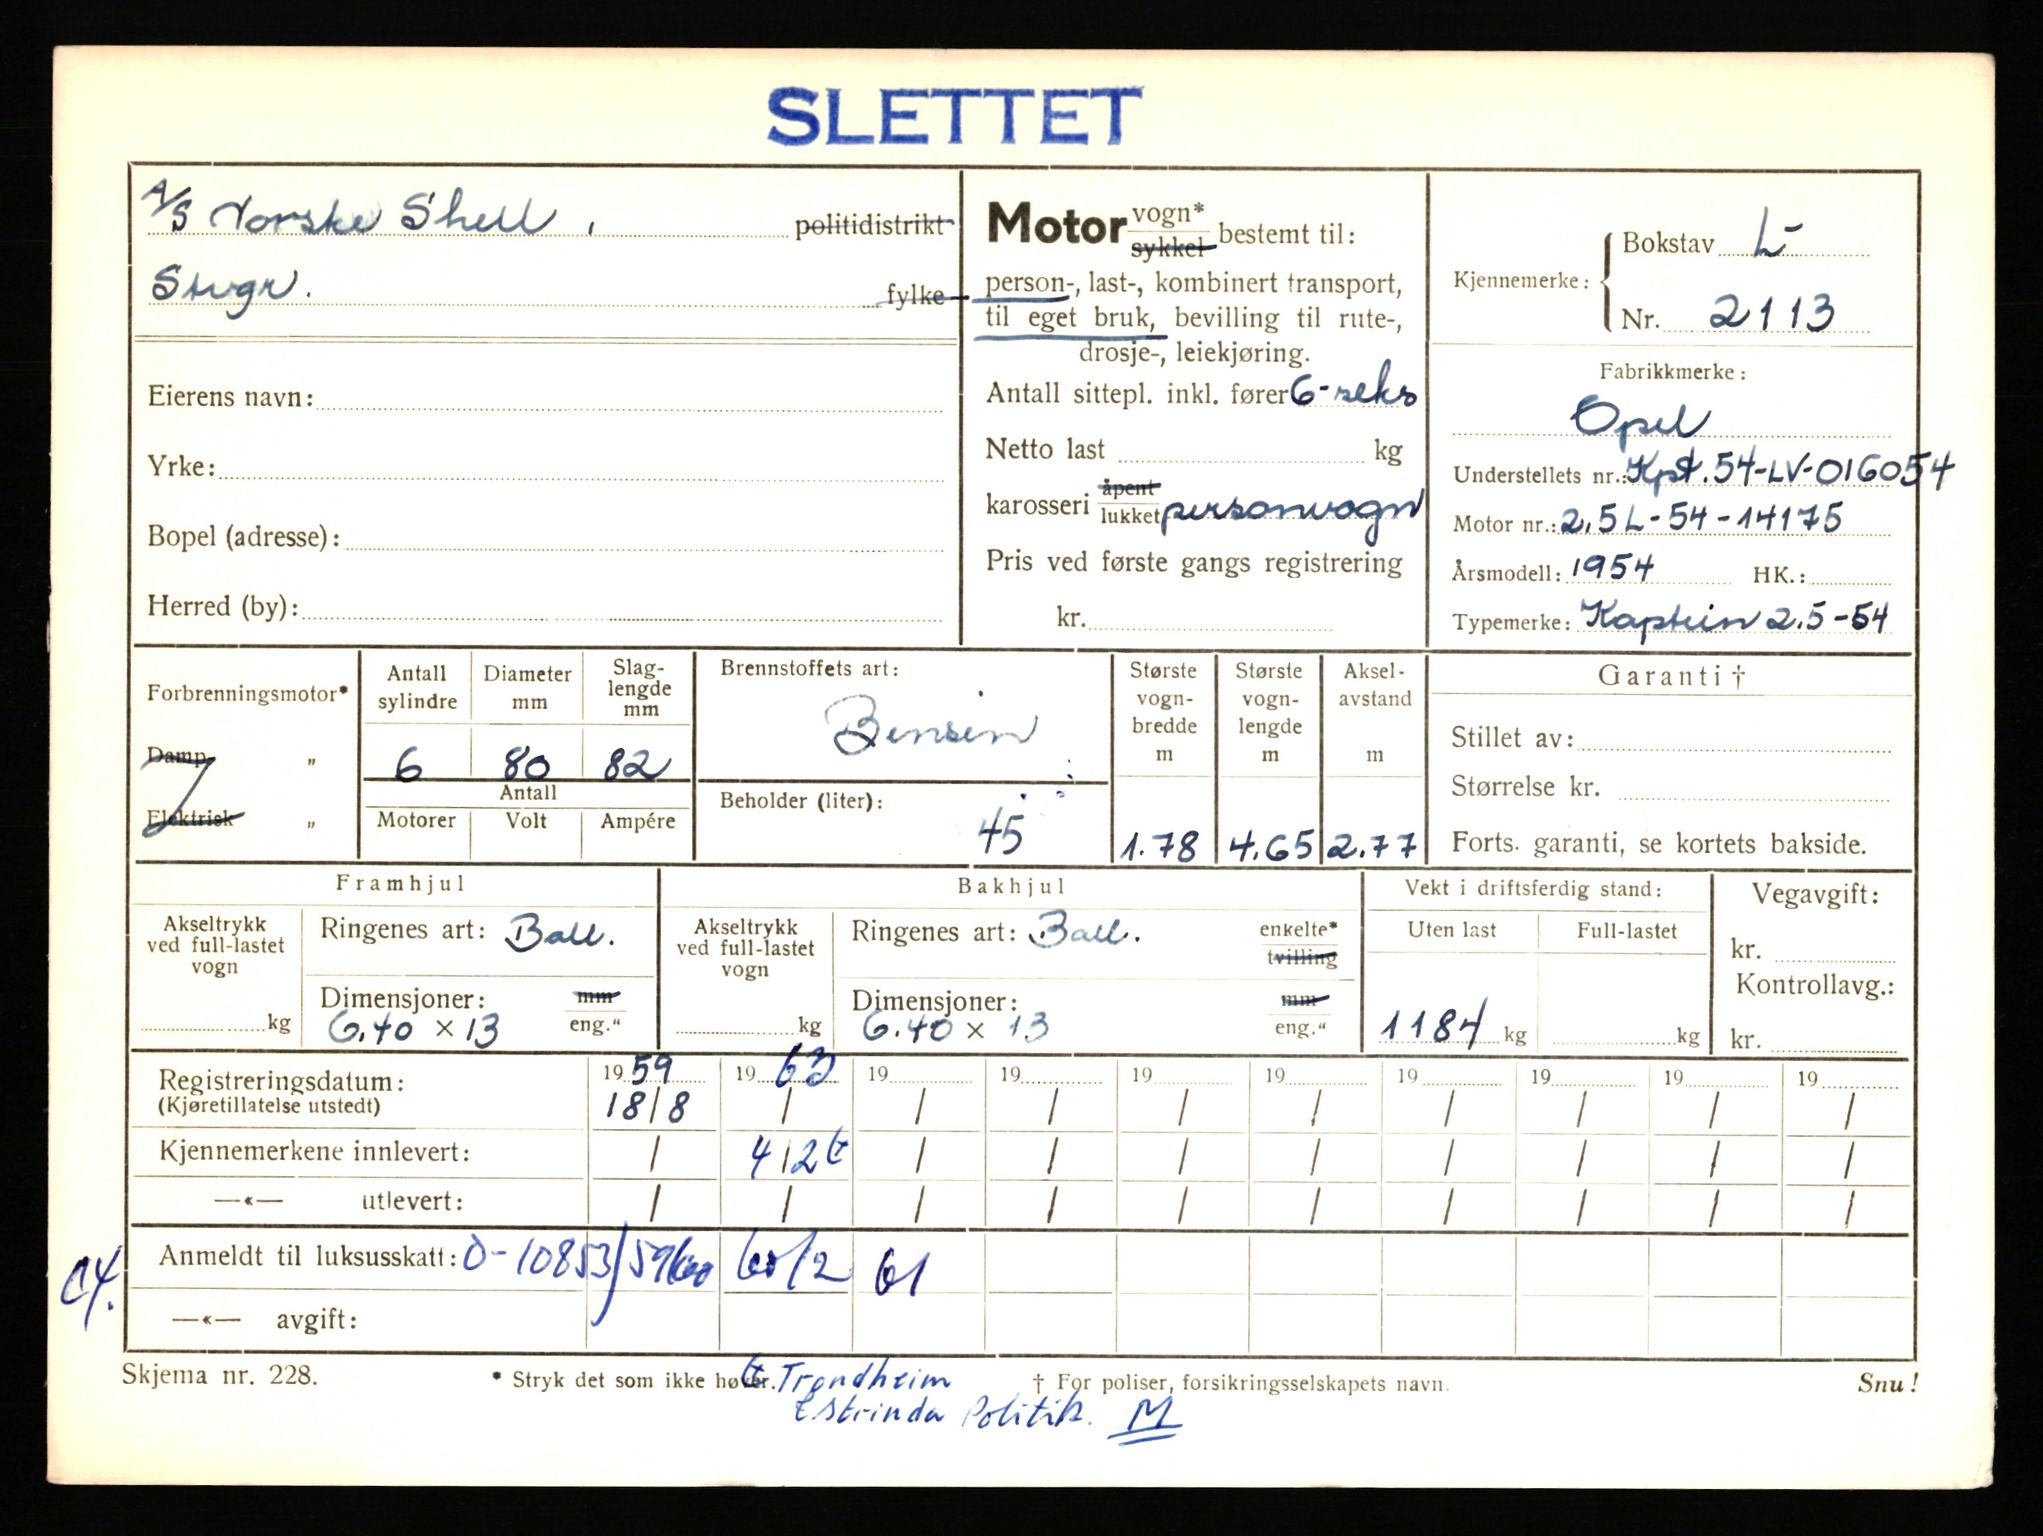 SLETTET
A/S Norske Shell, politidistrikt
Svgr. fylke
Eierens navn:
Yrke:
Bopel (adresse):
Herred (by):
Motor vogn* sykkel bestemt til:
person-, last-, kombinert transport,
til eget bruk, bevilling til rute-,
drosje-, leiekjøring.
Antall sittepl. inkl. fører 6-seks
Netto last kg
karosseri åpent lukket personvogn
Pris ved første gangs registrering
kr.
Kjennemerke: Bokstav L-
Nr. 2113
Fabrikkmerke:
Opel
Understellets nr.: Kpt. 54-LV-016054
Motor nr.: 2,5 L-54-14175
Årsmodell: 1954 HK.:
Typemerke: Kaptein 2.5-54
Forbrenningsmotor*
Damp "
Elektrisk "
Antall sylindre
Diameter mm
Slag-lengde mm
6 80 82
Antall
Motorer Volt Ampére
Brennstoffets art:
Bensin
Beholder (liter):
45
Største vogn-bredde m
1.78
Største vogn-lengde m
4.65
Aksel-avstand m
2.77
Garanti †
Stillet av:
Størrelse kr.
Forts. garanti, se kortets bakside.
Framhjul
Akseltrykk
ved full-lastet
vogn
kg
Ringenes art: Ball.
Dimensjoner: mm
6.40 × 13 eng."
Bakhjul
Akseltrykk
ved full-lastet
vogn
kg
Ringenes art: Ball. enkelte*
tvilling
Dimensjoner: mm
6.40 × 13 eng."
Vekt i driftsferdig stand:
Uten last Full-lastet
1184 kg kg
Vegavgift:
kr.
Kontrollavg.:
kr.
Registreringsdatum: 1959 1963 19 19 19 19 19 19 19 19
(Kjøretillatelse utstedt) 18/8 / / / / / / / / /
Kjennemerkene innlevert: / 4/2 t / / / / / / / /
—«— utlevert: / / / / / / / / / /
Anmeldt til luksusskatt: O-10853/59 60 60/2 61
—«— avgift:
Skjema nr. 228. * Stryk det som ikke høver. t Trondheim † For poliser, forsikringsselskapets navn. Snu!
Strinda Politik. M